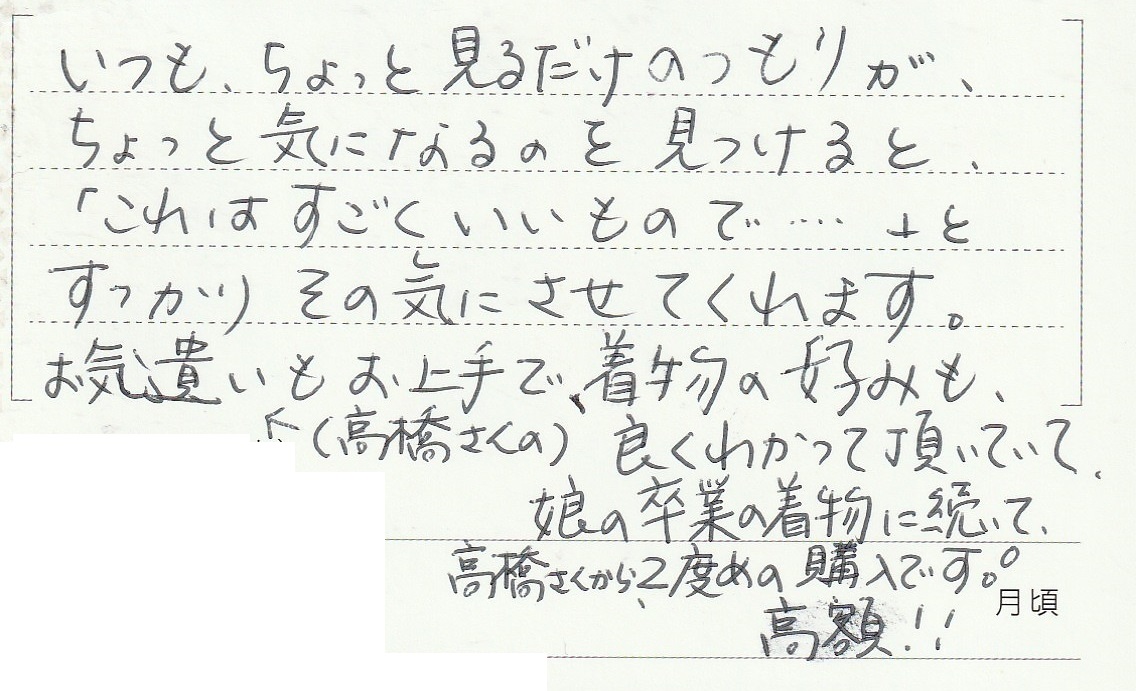 いつも、ちょっと見るだけのつもりが、
ちょっと気になるのを見つけると、
「これはすごくいいもので……」と
すっかりその気にさせてくれます。
お気遣いもお上手で、着物の好みも、
↑(高橋さんの) 良くわかって頂いていて、
娘の卒業の着物に続いて、
高橋さんから、2度めの購入です。。
月頃
高額!!